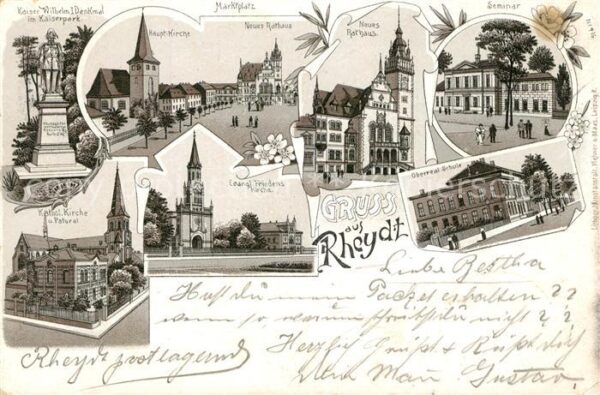 Kaiser Wilhelm I Denkmal
im Kaiserpark.
Marktplatz
Haupt-Kirche
Neues Rathaus
Neues
Rathaus.
Seminar
Kathol. Kirche
u. Pastorat.
Evangl. Friedens
Kirche.
Oberreal-Schule.
GRUSS
aus
Rheydt.
Liebe Bertha
Hast du mein Packet erhalten ? ?
wenn so, warum schreibst du nicht ? ?
Herzlich Grüßt & Küßt dich
Dein Mann Gustav
Rheydt postlagernd